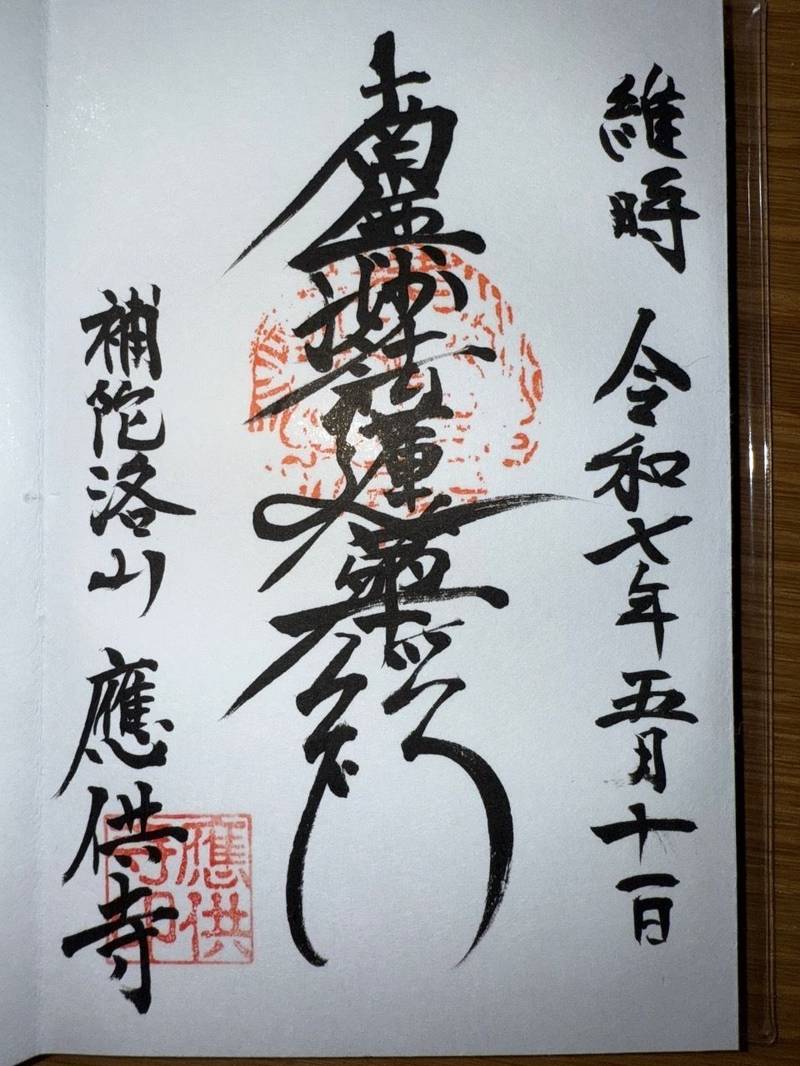 維時 令和七年五月十一日
南無妙法蓮華経
補陀洛山 應供寺
應供
寺印